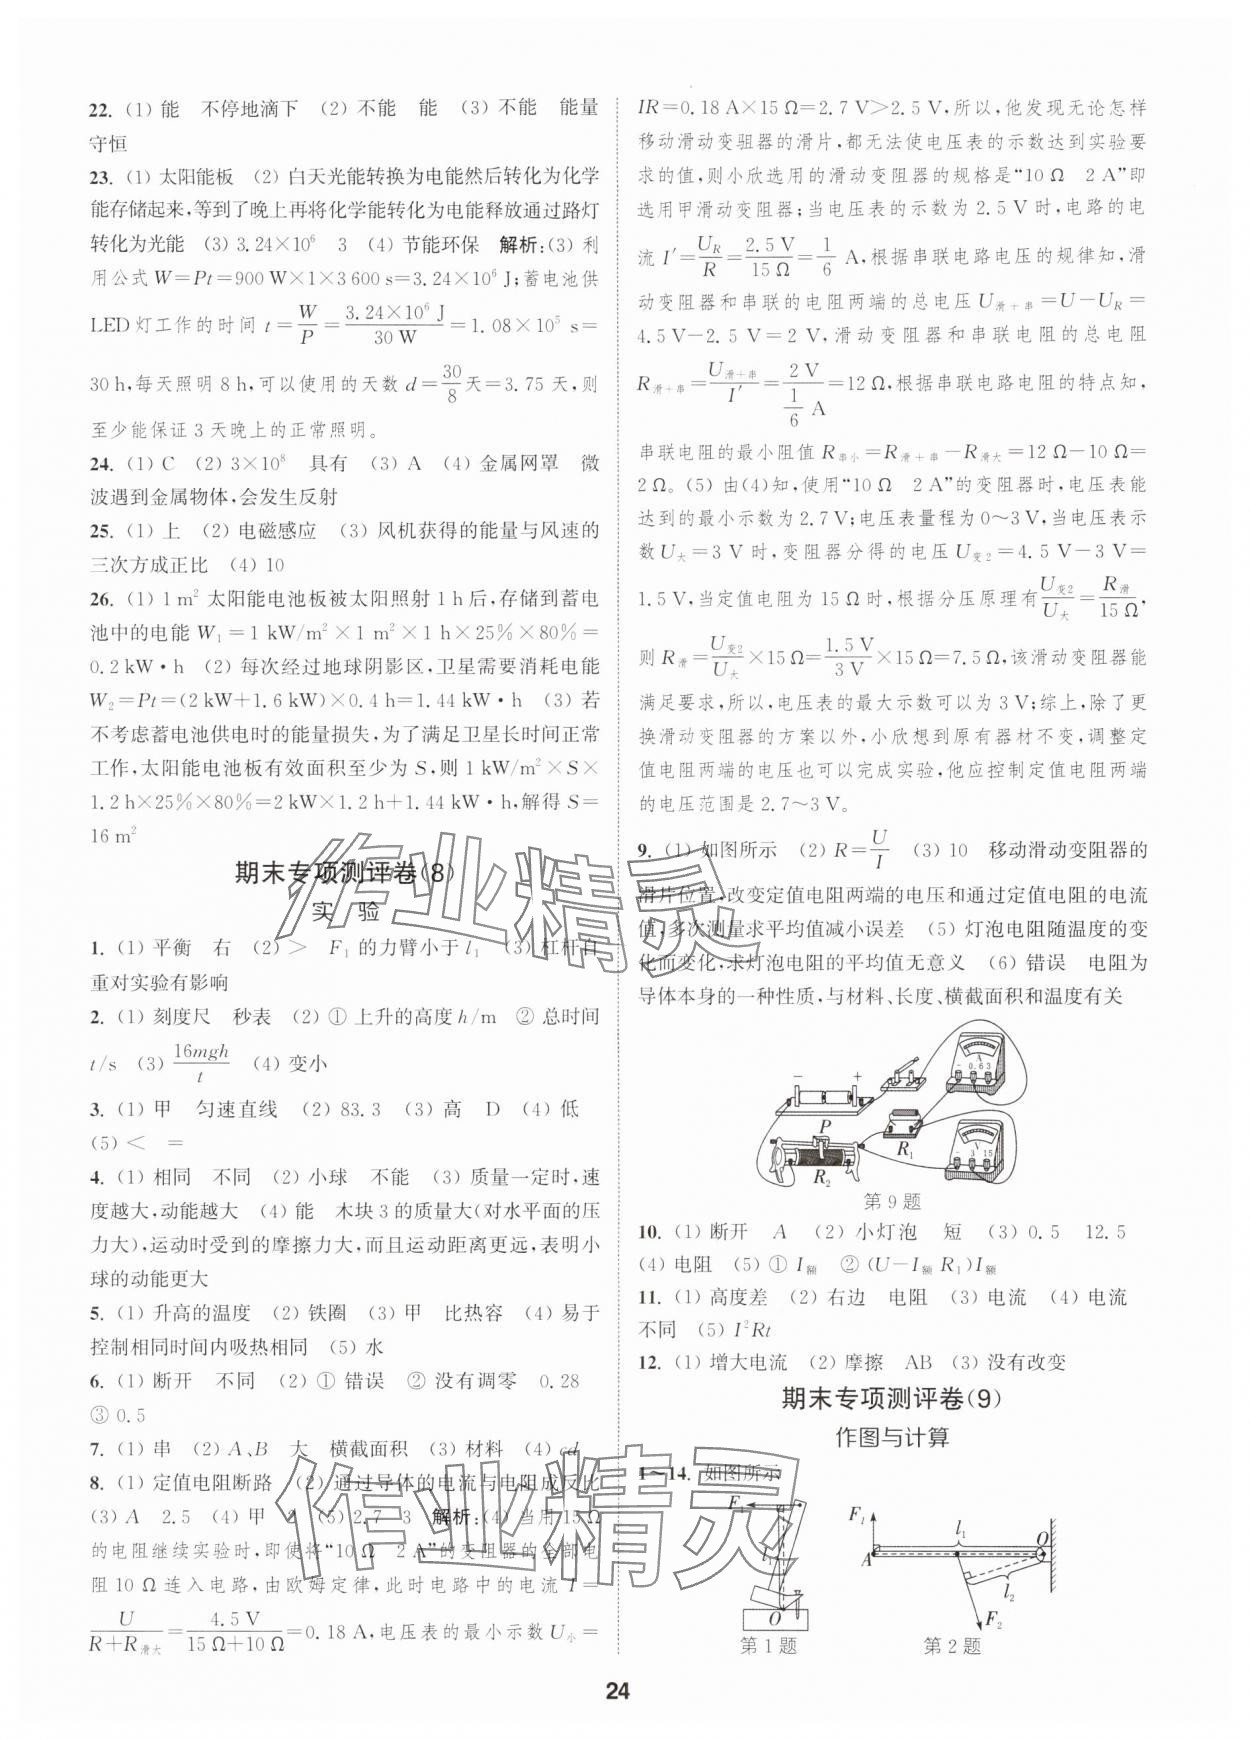 22. (1) 能　不停地滴下　(2) 不能　能　(3) 不能　能量
守恒
23. (1) 太阳能板　(2) 白天光能转换为电能然后转化为化学
能存储起来,等到了晚上再将化学能转化为电能释放通过路灯
转化为光能　(3) 3.24×10⁶　3　(4) 节能环保　解析:(3) 利
用公式 W=Pt=900 W×1×3 600 s=3.24×10⁶ J;蓄电池供
LED 灯工作的时间 t=W/P=3.24×10⁶ J/30 W=1.08×10⁵ s=
30 h,每天照明 8 h,可以使用的天数 d=30/8天=3.75 天,则
至少能保证 3 天晚上的正常照明。
24. (1) C　(2) 3×10⁸　具有　(3) A　(4) 金属网罩　微
波遇到金属物体,会发生反射
25. (1) 上　(2) 电磁感应　(3) 风机获得的能量与风速的
三次方成正比　(4) 10
26. (1) 1 m² 太阳能电池板被太阳照射 1 h 后,存储到蓄电
池中的电能 W₁=1 kW/m²×1 m²×1 h×25%×80%=
0.2 kW·h　(2) 每次经过地球阴影区,卫星需要消耗电能
W₂=Pt=(2 kW+1.6 kW)×0.4 h=1.44 kW·h　(3) 若
不考虑蓄电池供电时的能量损失,为了满足卫星长时间正常
工作,太阳能电池板有效面积至少为 S,则 1 kW/m²×S×
1.2 h×25%×80%=2 kW×1.2 h+1.44 kW·h,解得 S=
16 m²
期末专项测评卷(8)
实　验
1. (1) 平衡　右　(2) >　F₁ 的力臂小于 l₁　(3) 杠杆自
重对实验有影响
2. (1) 刻度尺　秒表　(2) ① 上升的高度 h/m　② 总时间
t/s　(3) 16mgh/t　(4) 变小
3. (1) 甲　匀速直线　(2) 83.3　(3) 高　D　(4) 低
(5) <　=
4. (1) 相同　不同　(2) 小球　不能　(3) 质量一定时,速
度越大,动能越大　(4) 能　木块 3 的质量大(对水平面的压
力大),运动时受到的摩擦力大,而且运动距离更远,表明小
球的动能更大
5. (1) 升高的温度　(2) 铁圈　(3) 甲　比热容　(4) 易于
控制相同时间内吸热相同　(5) 水
6. (1) 断开　不同　(2) ① 错误　② 没有调零　0.28
③ 0.5
7. (1) 串　(2) A、B　大　横截面积　(3) 材料　(4) cd
8. (1) 定值电阻断路　(2) 通过导体的电流与电阻成反比
(3) A　2.5　(4) 甲　2　(5) 2.7　3　解析:(4) 当用 15 Ω
的电阻继续实验时,即使将“10 Ω　2 A”的变阻器的全部电
阻 10 Ω 连入电路,由欧姆定律,此时电路中的电流 I=
U/(R+R滑大)=4.5 V/(15 Ω+10 Ω)=0.18 A,电压表的最小示数 U小=
IR=0.18 A×15 Ω=2.7 V>2.5 V,所以,他发现无论怎样
移动滑动变驵器的滑片,都无法使电压表的示数达到实验要
求的值,则小欣选用的滑动变阻器的规格是“10 Ω　2 A”即
选用甲滑动变阻器;当电压表的示数为 2.5 V 时,电路的电
流 I′=U_R/R=2.5 V/15 Ω=1/6 A,根据串联电路电压的规律知,滑
动变阻器和串联的电阻两端的总电压 U滑+串=U−U_R=
4.5 V−2.5 V=2 V,滑动变阻器和串联电阻的总电阻
R滑+串=U滑+串/I′=2 V/(1/6 A)=12 Ω,根据串联电路电阻的特点知,
串联电阻的最小阻值 R串小=R滑+串−R滑大=12 Ω−10 Ω=
2 Ω。(5) 由(4)知,使用“10 Ω　2 A”的变阻器时,电压表能
达到的最小示数为 2.7 V;电压表量程为 0～3 V,当电压表示
数 U大=3 V 时,变阻器分得的电压 U变2=4.5 V−3 V=
1.5 V,当定值电阻为 15 Ω 时,根据分压原理有U变2/U大=R滑/15 Ω,
则 R滑=U变2/U大×15 Ω=1.5 V/3 V×15 Ω=7.5 Ω,该滑动变阻器能
满足要求,所以,电压表的最大示数可以为 3 V;综上,除了更
换滑动变阻器的方案以外,小欣想到原有器材不变,调整定
值电阻两端的电压也可以完成实验,他应控制定值电阻两端
的电压范围是 2.7～3 V。
9. (1) 如图所示　(2) R=U/I　(3) 10　移动滑动变阻器的
滑片位置,改变定值电阻两端的电压和通过定值电阻的电流
值,多次测量求平均值减小误差　(5) 灯泡电阻随温度的变
化而变化,求灯泡电阻的平均值无意义　(6) 错误　电阻为
导体本身的一种性质,与材料、长度、横截面积和温度有关
− +
A
− 0.6 3
P
R₁
R₂
V
− 3 15
第 9 题
10. (1) 断开　A　(2) 小灯泡　短　(3) 0.5　12.5
(4) 电阻　(5) ① I额　② (U−I额 R₁)I额
11. (1) 高度差　(2) 右边　电阻　(3) 电流　(4) 电流
不同　(5) I²Rt
12. (1) 增大电流　(2) 摩擦　AB　(3) 没有改变
期末专项测评卷(9)
作图与计算
1～14. 如图所示
F₁
l₁
O
第 1 题
F₁
l₁
O
A
l₂
F₂
第 2 题
24
作业精灵
作业精灵